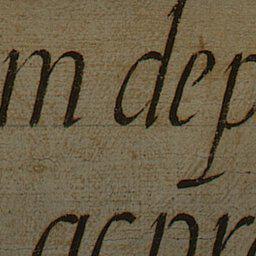 m dep
acpr